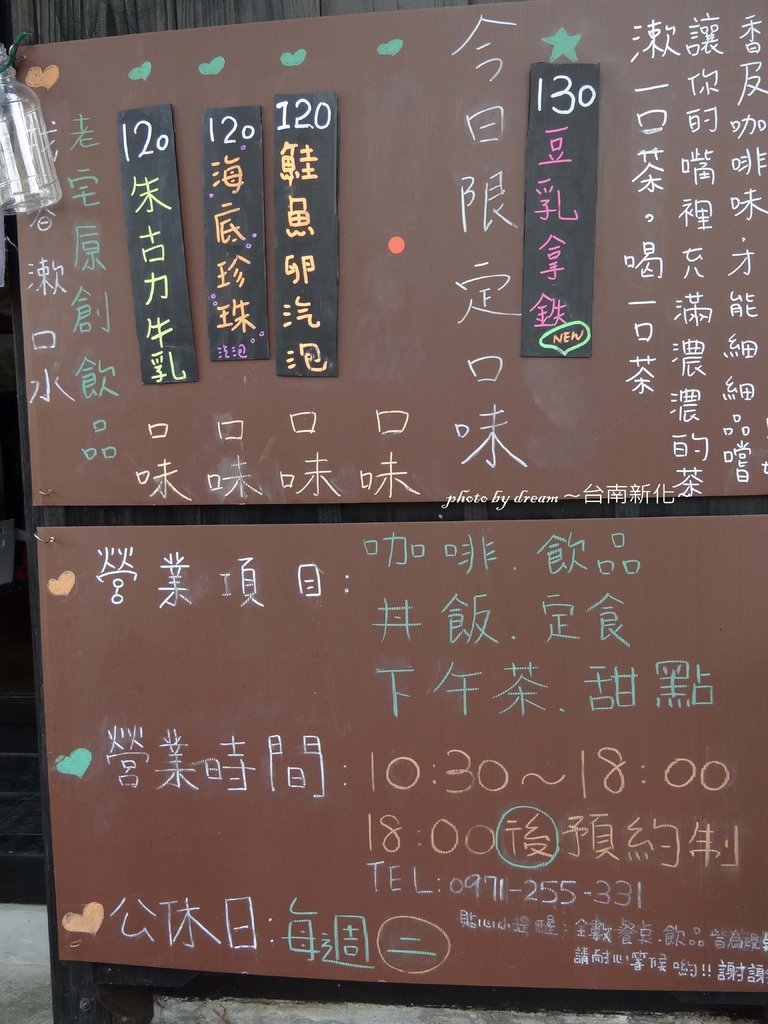 香及咖啡味,才能細細品嚐
讓你的嘴裡充滿濃濃的茶
漱一口茶。喝一口茶
130
豆乳拿鐵
NEW
今日限定口味
口味
120
鮭魚卵汽泡
口味
120
海底珍珠
汽泡
口味
120
朱古力牛乳
口味
老宅原創飲品
漱口水
photo by dream~台南新化
營業項目:
咖啡.飲品
丼飯.定食
下午茶.甜點
營業時間:10:30~18:00
18:00後預約制
TEL:0971-255-331
公休日:每週二
貼心小提醒:全數餐点.飲品皆為現
請耐心等候喲!!謝謝